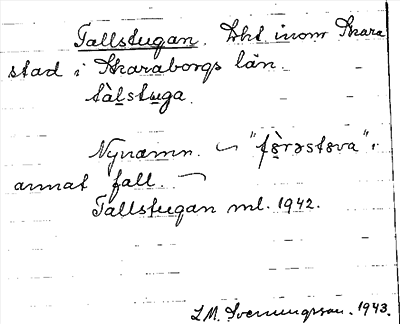 Tallstugan. Lht inom Skara
stad i Skaraborgs län.
tàlstuga.
Nynamn. ~ "fö̀rəstəva" i
annat fall. ~
Tallstugan ml. 1942.
I.M. Svenungsson. 1943.